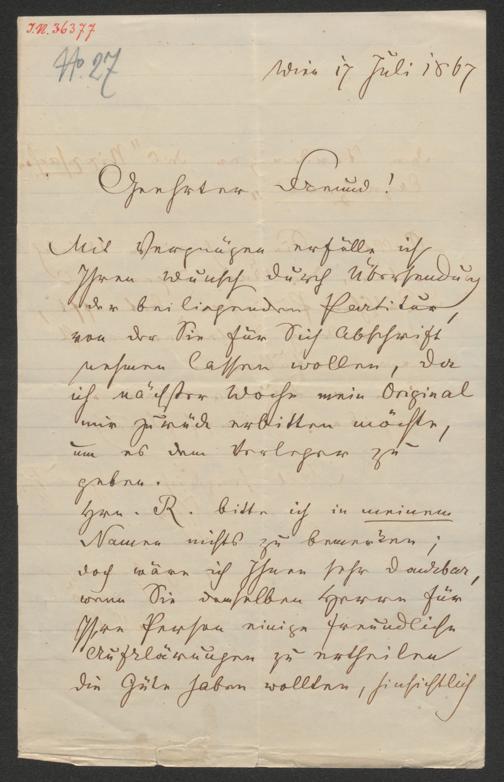 I.N. 36377
No. 27
Wien 17 Juli 1867
Geehrter Freund!
Mit Vergnügen erfülle ich
Ihren Wunsch durch Übersendung
der beiliegenden Partitur,
von der Sie für Sich Abschrift
nehmen lassen wollen, da
ich nächster Woche mein Original
mir zurück erbitten möchte,
um es dem Verleger zu
geben.
Hrn. R. bitte ich in meinem
Namen nichts zu bemerken;
doch wäre ich Ihnen sehr dankbar,
wenn Sie demselben Herrn für
Ihre Person einige freundliche
Aufklärungen zu ertheilen
die Güte haben wollten, hinsichtlich